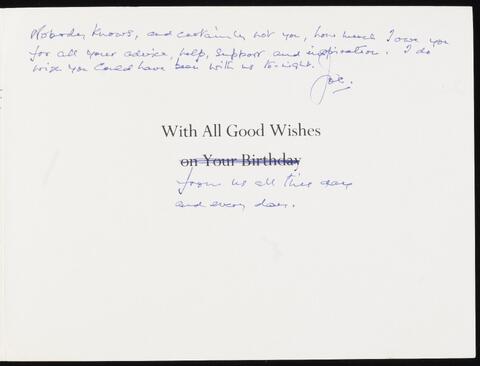 Nobody knows, and certainly not you, how much I owe you
for all your advice, help, support and inspiration. I do
wish you could have been with us to-night.
Joe.
With All Good Wishes
on Your Birthday
from us all this day
and every day.